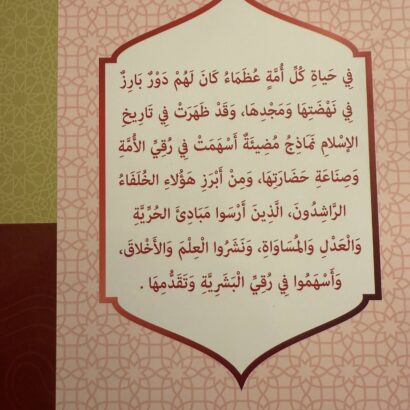 فِي حَيَاةِ كُلِّ أُمَّةٍ عُظَمَاءُ كَانَ لَهُمْ دَوْرٌ بَارِزٌ
فِي نَهْضَتِهَا وَمَجْدِهَا، وَقَدْ ظَهَرَتْ فِي تَارِيخِ
الإِسْلَامِ نَمَاذِجُ مُضِيئَةٌ أَسْهَمَتْ فِي رُقِيِّ الأُمَّةِ
وَصِنَاعَةِ حَضَارَتِهَا، وَمِنْ أَبْرَزِ هَؤُلَاءِ الخُلَفَاءُ
الرَّاشِدُونَ، الَّذِينَ أَرْسَوا مَبَادِئَ الحُرِّيَّةِ
وَالْعَدْلِ وَالمُسَاوَاةِ، وَنَشَرُوا الْعِلْمَ وَالأَخْلَاقَ،
وَأَسْهَمُوا فِي رُقِيِّ الْبَشَرِيَّةِ وَتَقَدُّمِهَا .